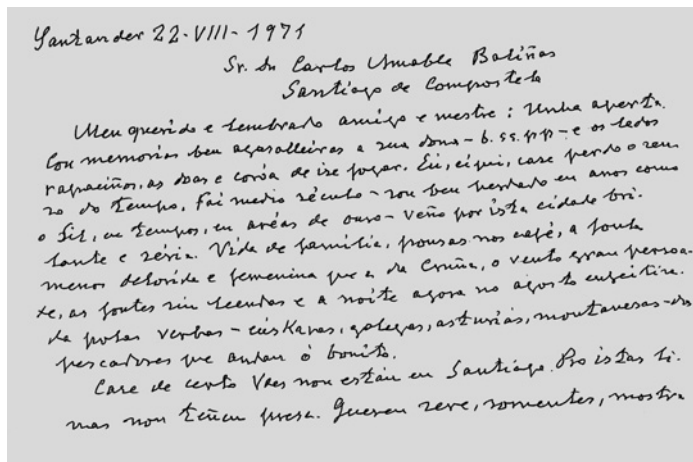 Santander 22-VIII-1971
Sr. Dn Carlos Amable Baliñas
Santiago de Compostela
Meu querido e lembrado amigo e mestre: Unha aperta
con memorias ben agasalleiras a sua dona - b.ss.pp - e os ledos
rapaciños, as doas e coróa de ise fogar. Eu, eiquí, case perdo o sen-
so do tempo. Fai medio século - sou ben herdado en anos como
o Sil, en tempos, en aréas de ouro - veño por ista cidade bri-
lante e séria. Vida de familia, pousas nos café, a fonte
menos delorida e femenina que a da Cruña, o vento gran persoa-
xe, as fontes sin lendas e a noite agora no agosto enfeitiza-
da polas verbas - éuskaras, galegas, asturiás, montanesas - dos
pescadores que andan ó bonito.
Case de certo Vdes non están en Santiago. Pro istas li-
mas non teñen presa. Queren sere, somentes, mostra